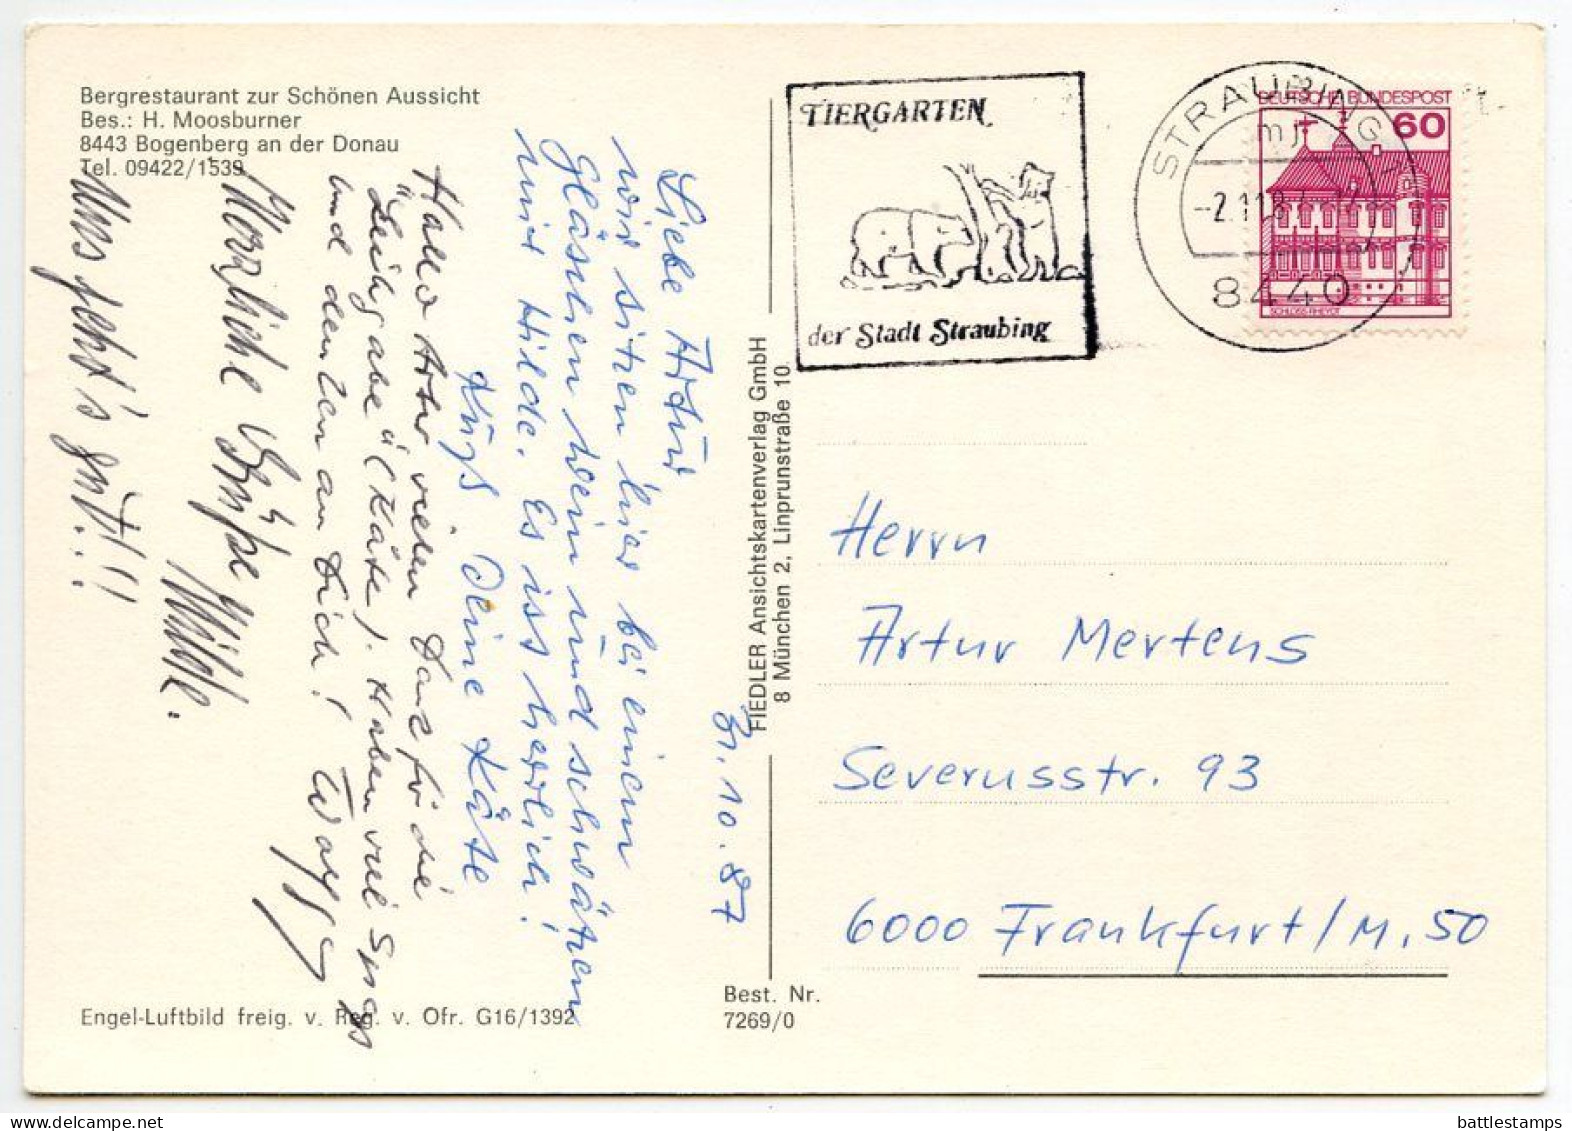 Bergrestaurant zur Schönen Aussicht
Bes.: H. Moosburner
8443 Bogenberg an der Donau
Tel. 09422/1539
TIERGARTEN
der Stadt Straubing
STRAUBING 1
mj
-2.11.8
8440
DEUTSCHE BUNDESPOST
60
SCHLOSS RHEYDT
31.10.87
Liebe Artur
wir sitzen hier bei einem
Gläschen Wein und schwätzen
mit Hilde. Es ist herrlich!
Kuß Deine Käte
Hallo Artur vielen Dank für die
"Leihgabe" (Käte). Haben viel Spass
und denken an Dich!
Herzliche Grüße Hilde.
Uns geht's gut!!!
FIEDLER Ansichtskartenverlag GmbH
8 München 2, Linprunstraße 10
Herrn
Artur Mertens
Severusstr. 93
6000 Frankfurt/M. 50
Engel-Luftbild freig. v. Reg. v. Ofr. G16/1392
Best. Nr.
7269/0
battlestamps